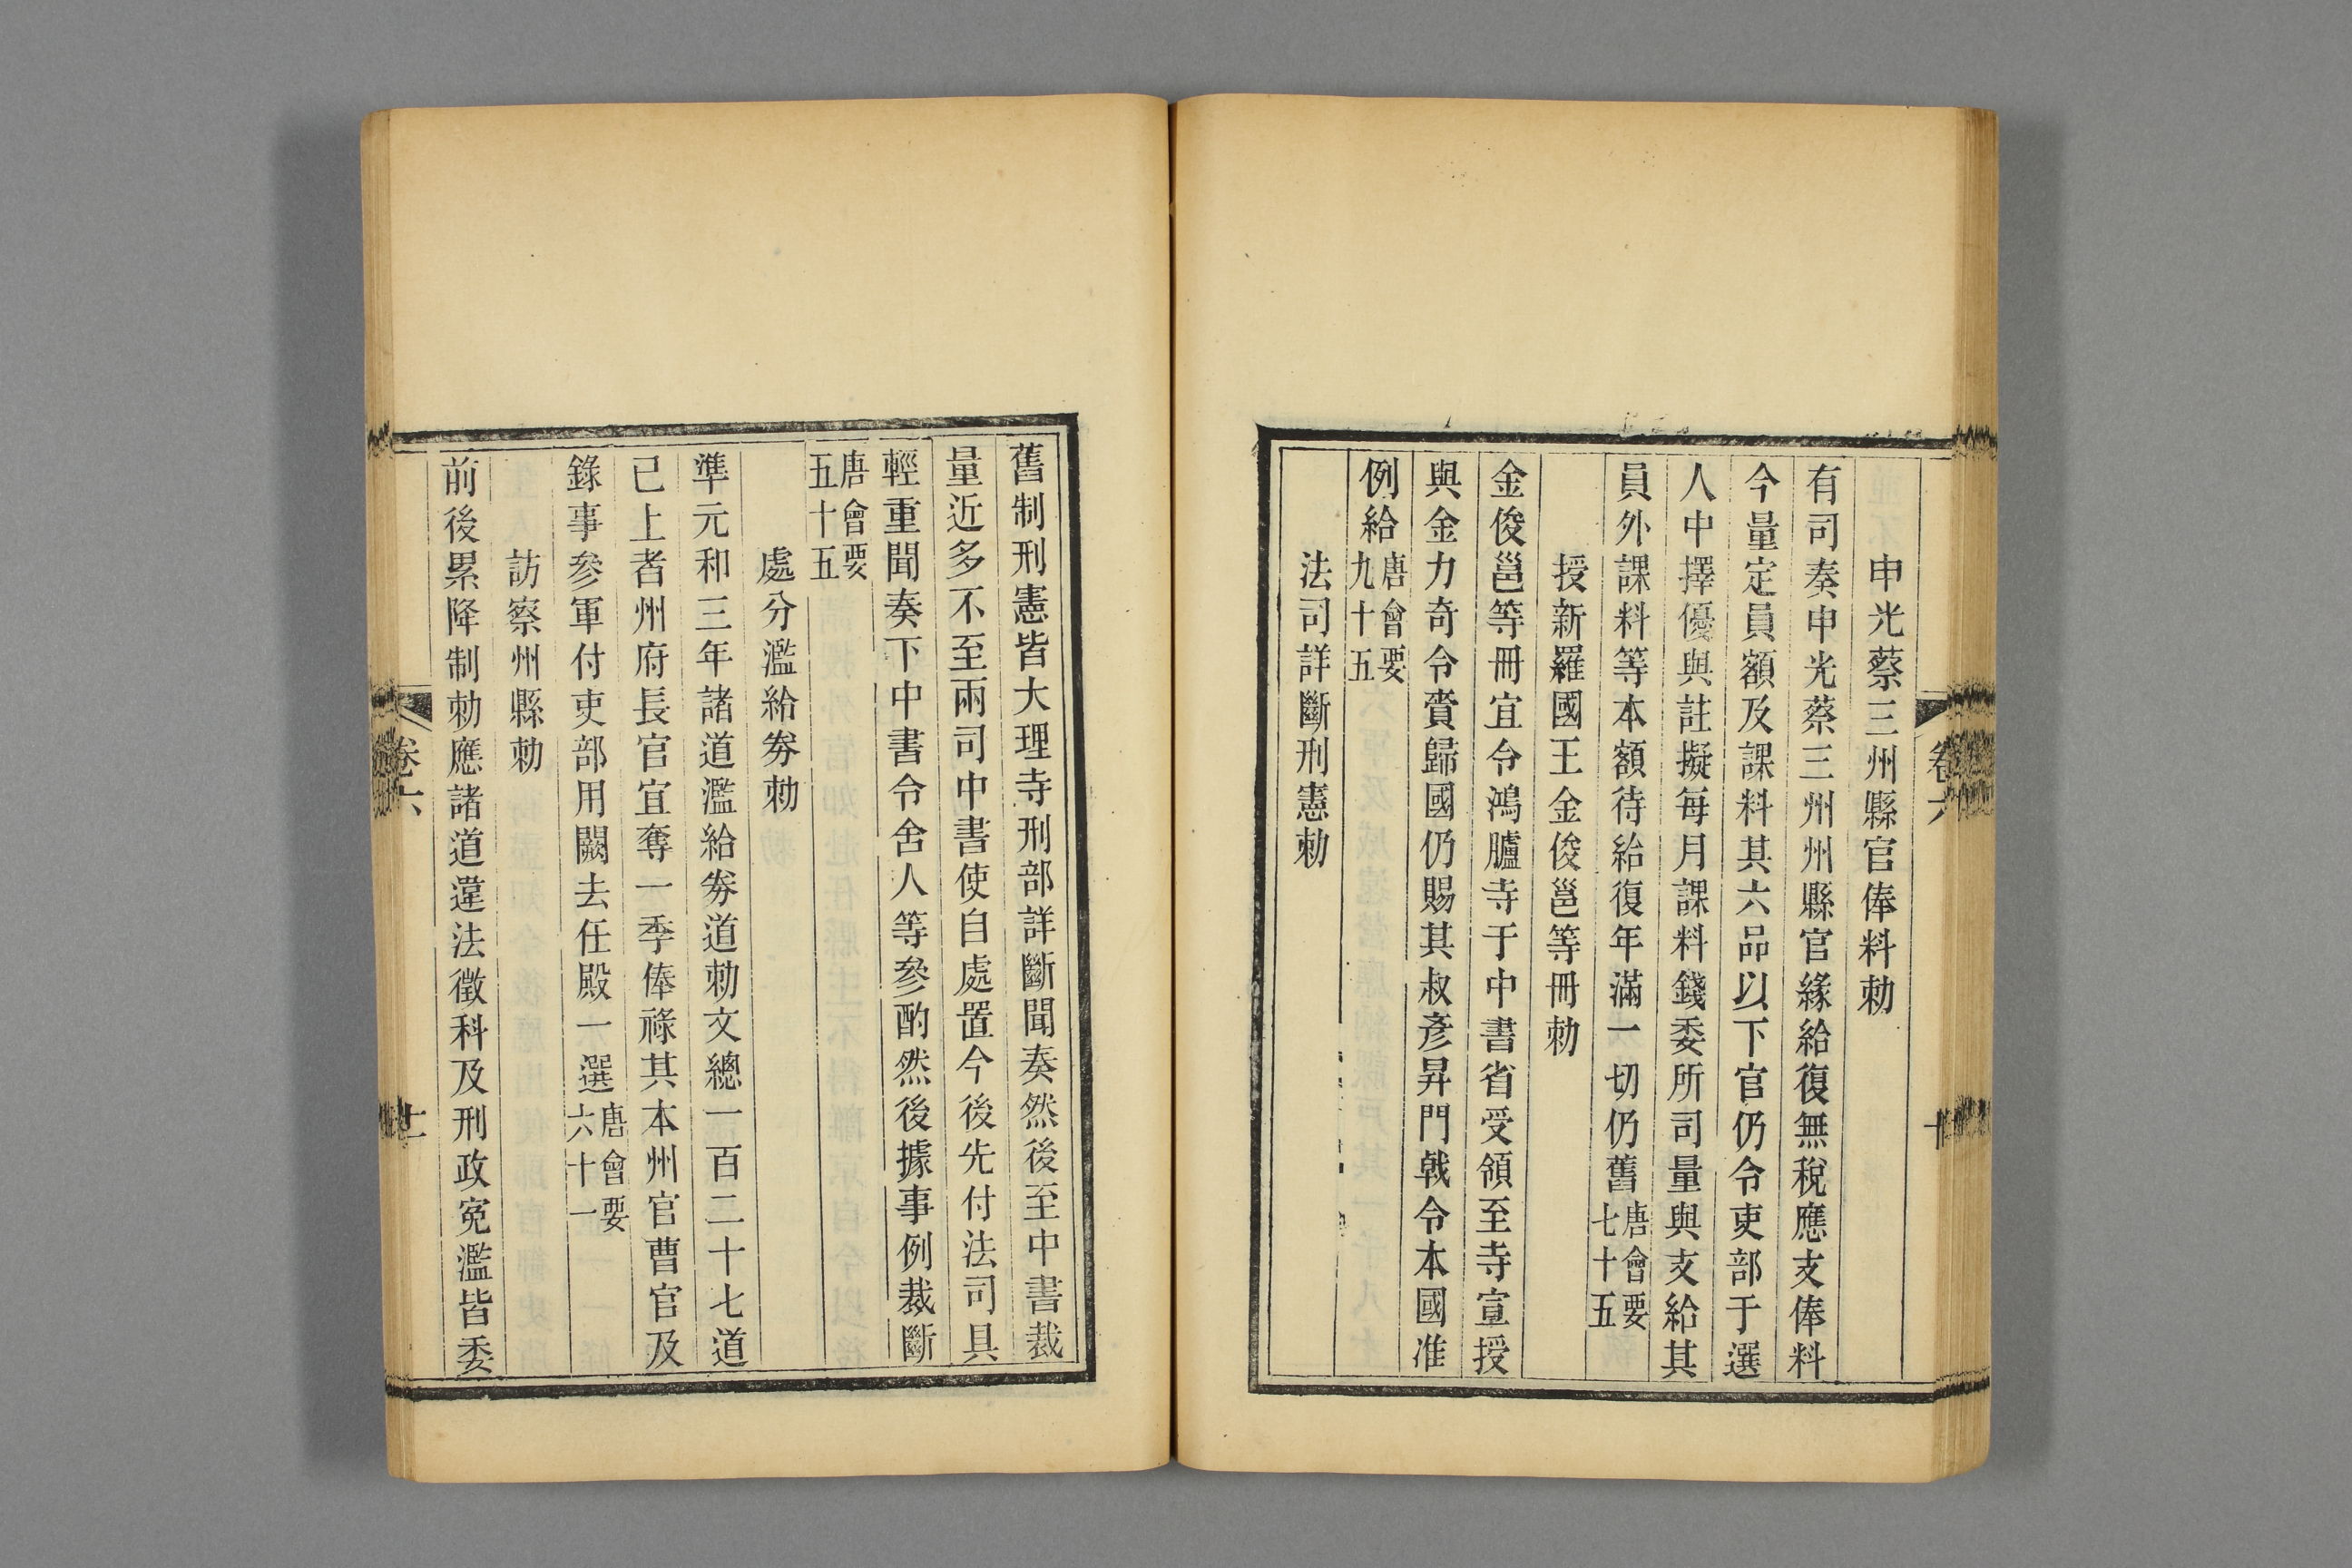 申光蔡三州縣官俸料勅
有司奏申光蔡三州州縣官緣給復無稅應支俸料
今量定員額及課料其六品以下官仍令吏部于選
人中擇優與註擬每月課料錢委所司量與支給其
員外課料等本額待給復年滿一切仍舊唐會要七十五
授新羅國王金俊邕等冊勅
金俊邕等冊宜令鴻臚寺于中書省受領至寺宣授
與金力奇令賫歸國仍賜其叔彥昇門戟令本國准
例給唐會要九十五
法司詳斷刑憲勅
卷六
十
舊制刑憲皆大理寺刑部詳斷聞奏然後至中書裁
量近多不至兩司中書使自處置今後先付法司具
輕重聞奏下中書令舍人等參酌然後據事例裁斷
唐會要五十五
處分濫給券勅
準元和三年諸道濫給券道勅文總一百二十七道
已上者州府長官宜奪一季俸祿其本州官曹官及
錄事參軍付吏部用闕去任殿一選唐會要六十一
訪察州縣勅
前後累降制勅應諸道違法徵科及刑政冤濫皆委
卷六